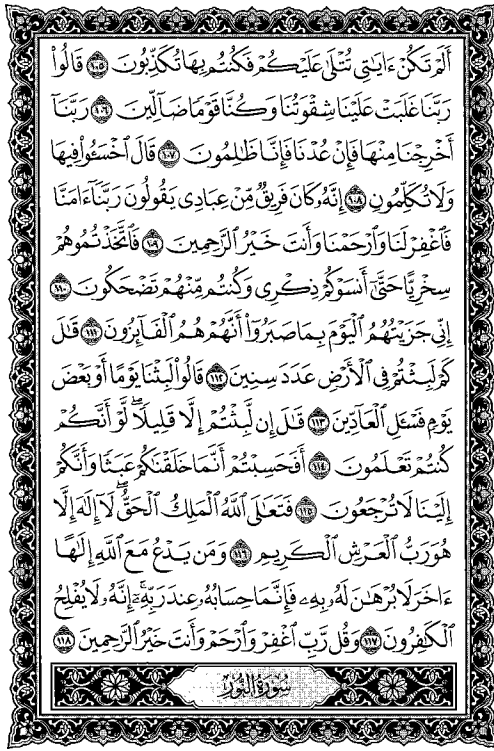 أَلَمْ تَكُنْ ءَايَٰتِى تُتْلَىٰ عَلَيْكُمْ فَكُنتُم بِهَا تُكَذِّبُونَ ١٠٥ قَالُوا۟
رَبَّنَا غَلَبَتْ عَلَيْنَا شِقْوَتُنَا وَكُنَّا قَوْمًا ضَآلِّينَ ١٠٦ رَبَّنَآ
أَخْرِجْنَا مِنْهَا فَإِنْ عُدْنَا فَإِنَّا ظَٰلِمُونَ ١٠٧ قَالَ ٱخْسَـُٔوا۟ فِيهَا
وَلَا تُكَلِّمُونِ ١٠٨ إِنَّهُۥ كَانَ فَرِيقٌ مِّنْ عِبَادِى يَقُولُونَ رَبَّنَآ ءَامَنَّا
فَٱغْفِرْ لَنَا وَٱرْحَمْنَا وَأَنتَ خَيْرُ ٱلرَّٰحِمِينَ ١٠٩ فَٱتَّخَذْتُمُوهُمْ
سِخْرِيًّا حَتَّىٰٓ أَنسَوْكُمْ ذِكْرِى وَكُنتُم مِّنْهُمْ تَضْحَكُونَ ١١٠
إِنِّى جَزَيْتُهُمُ ٱلْيَوْمَ بِمَا صَبَرُوٓا۟ أَنَّهُمْ هُمُ ٱلْفَآئِزُونَ ١١١ قَٰلَ
كَمْ لَبِثْتُمْ فِى ٱلْأَرْضِ عَدَدَ سِنِينَ ١١٢ قَالُوا۟ لَبِثْنَا يَوْمًا أَوْ بَعْضَ
يَوْمٍ فَسْـَٔلِ ٱلْعَآدِّينَ ١١٣ قَٰلَ إِن لَّبِثْتُمْ إِلَّا قَلِيلًا ۖ لَّوْ أَنَّكُمْ
كُنتُمْ تَعْلَمُونَ ١١٤ أَفَحَسِبْتُمْ أَنَّمَا خَلَقْنَٰكُمْ عَبَثًا وَأَنَّكُمْ
إِلَيْنَا لَا تُرْجَعُونَ ١١٥ فَتَعَٰلَى ٱللَّهُ ٱلْمَلِكُ ٱلْحَقُّ ۖ لَآ إِلَٰهَ إِلَّا
هُوَ رَبُّ ٱلْعَرْشِ ٱلْكَرِيمِ ١١٦ وَمَن يَدْعُ مَعَ ٱللَّهِ إِلَٰهًا
ءَاخَرَ لَا بُرْهَٰنَ لَهُۥ بِهِۦ فَإِنَّمَا حِسَابُهُۥ عِندَ رَبِّهِۦٓ ۚ إِنَّهُۥ لَا يُفْلِحُ
ٱلْكَٰفِرُونَ ١١٧ وَقُل رَّبِّ ٱغْفِرْ وَٱرْحَمْ وَأَنتَ خَيْرُ ٱلرَّٰحِمِينَ ١١٨
سُورَةُ النُّورِ